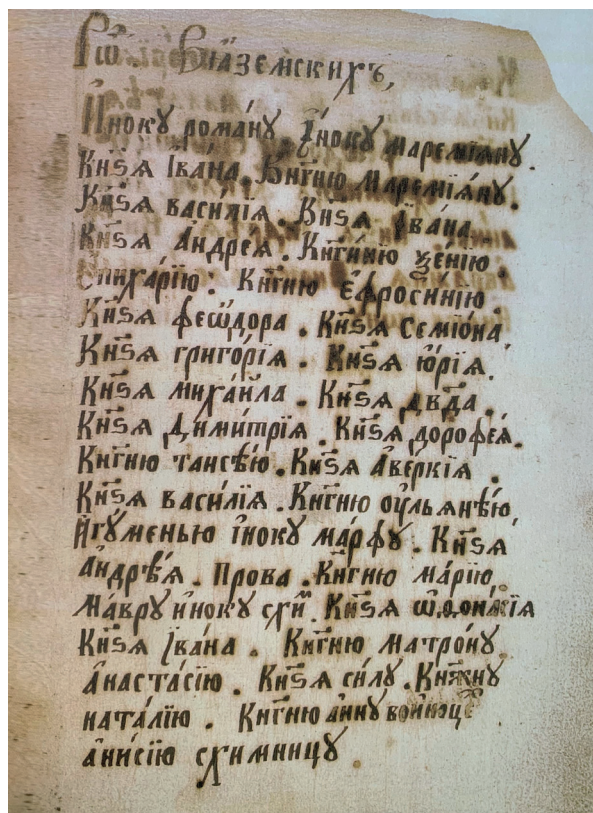 Рѡ҃. Вꙗ́земскихъ,
И҆нокꙋ рома́нꙋ. І҆нокꙋ маремїѧ́нꙋ.
Кнѕ҃ѧ І҆ва́на. Кнг҃ню Маремїѧ́нꙋ.
Кнѕ҃ѧ васи́лїѧ. Кнѕ҃ѧ І҆ва́на
Кнѕ҃ѧ А҆ндрея. Кнг҃иню ѯе́нїю
Кнг҃ню є҆ѳроси́нїю
Кнѕ҃ѧ феѡ́дора. Кнѕ҃ѧ Семїо́на
Кнѕ҃ѧ григо́рїѧ. Кнѕ҃ѧ ю҆́рїѧ.
Кнѕ҃ѧ миха́йла. Кнѕ҃ѧ дв҃да.
Кнѕ҃ѧ Дими́трїѧ. Кнѕ҃ѧ дороѳе́ѧ.
Кнг҃ню таисѣ́ю. Кнѕ҃ѧ А҆ве́ркїѧ.
Кнѕ҃ѧ васи́лїѧ. Кнг҃ню ѹ҆льянѣ́ю,
И҆гꙋ́менью і҆нокꙋ ма́рѳꙋ. Кнѕ҃ѧ
а҆ндрѣ́ѧ. Прова. Кнг҃ню ма́рїю
Ма́врꙋ и҆нокꙋ схи. Кнѕ҃ѧ
Кнѕ҃ѧ І҆ва́на. Кнг҃ню матро́нꙋ
а҆наста́сїю. Кнѕ҃ѧ си́лꙋ. Кнѧжнꙋ
ната́лїю. Кнг҃ню а҆́ннꙋ
а҆ни́сїю схимницꙋ